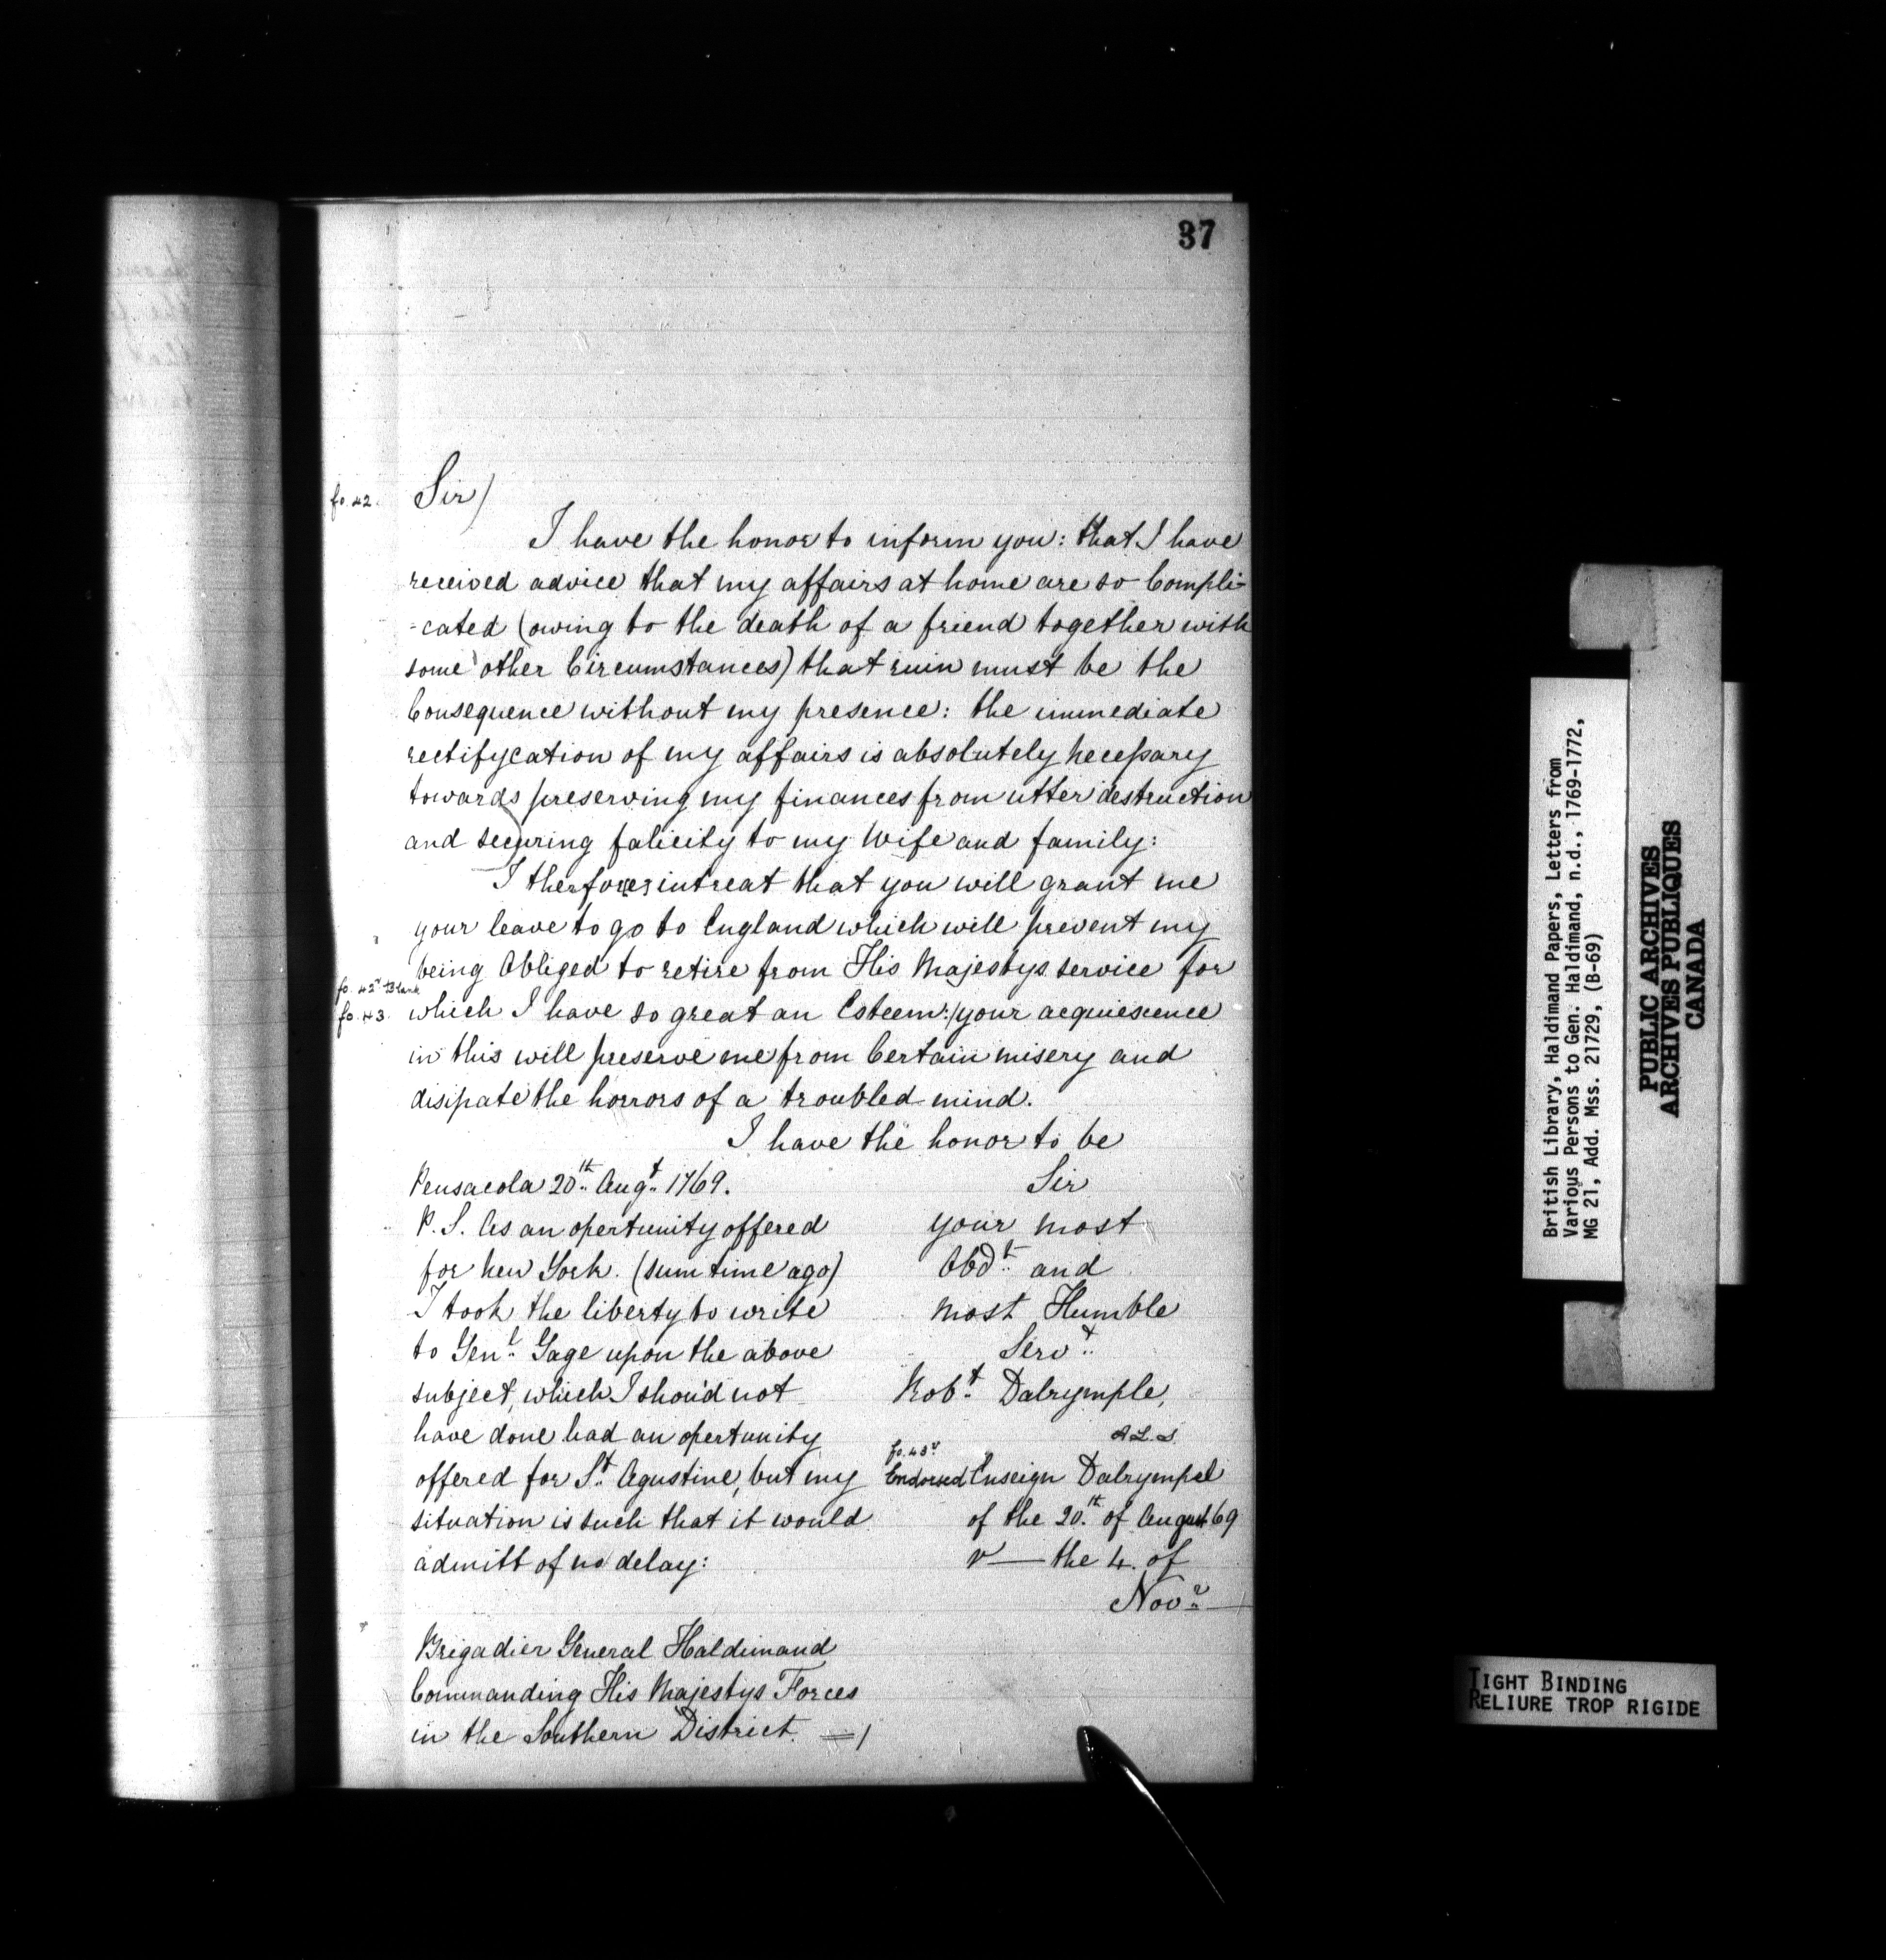 37
fo. 42.
Sir)
I have the honor to inform you: that I have
received advice that my affairs at home are so Compli-
-cated (owing to the death of a friend together with
some other Circumstances) that ruin must be the
Consequence without my presence: the immediate
rectifycation of my affairs is absolutely necessary
towards preserving my finances from utter destruction
and securing falicity to my Wife and family:
I therfo[re] intreat that you will grant me
your leave to go to England which will prevent my
being Obliged to retire from His Majestys service for
fo. 42v Blank
fo. 43.
which I have so great an Esteem:/your acquiescence
in this will preserve me from Certain misery and
disipate the horrors of a troubled mind.
I have the honor to be
Pensacola 20th Augt 1769.
Sir
P. S. As an opertunity offered
for New York. (sum time ago)
I took the liberty to write
to Genl Gage upon the above
subject, which I shou'd not
have done had an opertunity
offered for St Agustine, but my
situation is such that it would
admitt of no delay:
your most
Obdt and
most Humble
Servt
Robt Dalrymple,
A.L.S.
fo. 43v
Endorsed Enseign Dalrympel
of the 20th of August 69
r — the 4. of
Novr —
Brigadier General Haldimand
Commanding His Majestys Forces
in the Southern District. =/
British Library, Haldimand Papers, Letters from
Various Persons to Gen. Haldimand, n.d., 1769-1772,
MG 21, Add. Mss. 21729, (B-69)
PUBLIC ARCHIVES
ARCHIVES PUBLIQUES
CANADA
TIGHT BINDING
RELIURE TROP RIGIDE